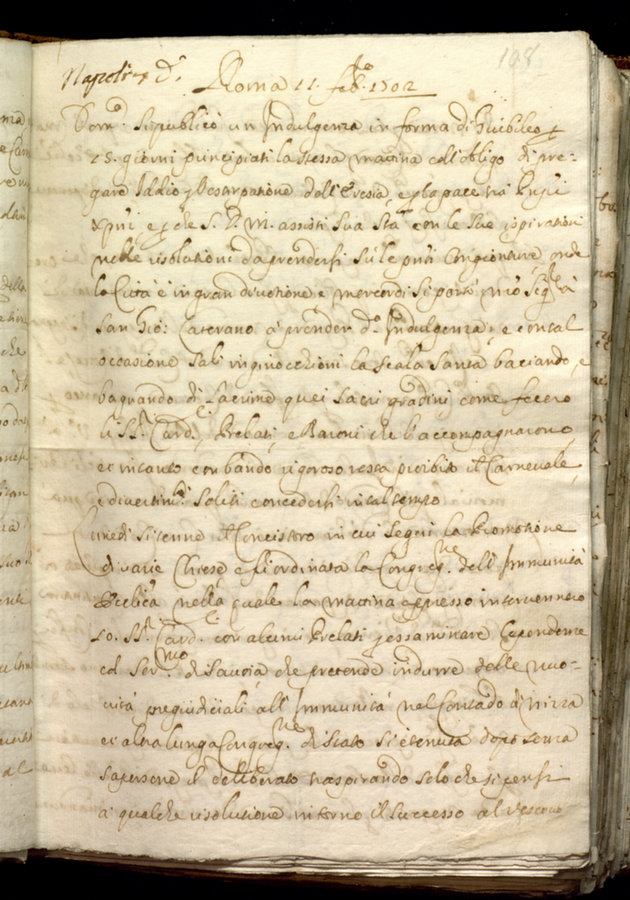 198
Napoli d.
Roma 11 feb.ro 1702
Dom.ca Si publicò un Indulgenza in forma di Giubileo
15. giorni principiati la stessa mattina coll' obligo di pre-
gare Iddio p l'estirpatione dell' Eresia, e p la pace trà Prnpi
Xpni e p che S. D. M. assisti Sua Stà con le Sue ispirationi
nelle risolutioni da prendersi sù le pnti Congionture, onde
la Città è in gran divotione e mercordì si portò
San Gio: Laterano à prender d.a Indulgenza, e con tal
occasione salì in ginocchioni la Scala Santa baciando, e
bagnando di Lacrime quei Sacri gradini come fecero
li SS.ri Card.li, Prelati, e Baroni che l'accompagnarono,
et intanto con bando rigoroso resta proibito il Carnevale,
e divertim.ti soliti concedersi in tal tempo
Lunedì si tenne il Concistoro in cui seguì la Promotione
di varie Chiese e fù ordinata la Congreg.ne dell' Immunità
Ecclica nella quale la mattina appresso intervennero
10. SS.ri Card.li con alcuni Prelati p essaminare
col Ser.mo di Savoia, che pretende indurre delle nuo-
vità pregiudiciali all' Immunità nel Contado di Nizza
et altra lunga Congreg.ne di Stato si è tenuta dopo senza
sapersene il deliberato traspirando solo che si pensi
à qualche risolutione intorno il successo al Vescovo